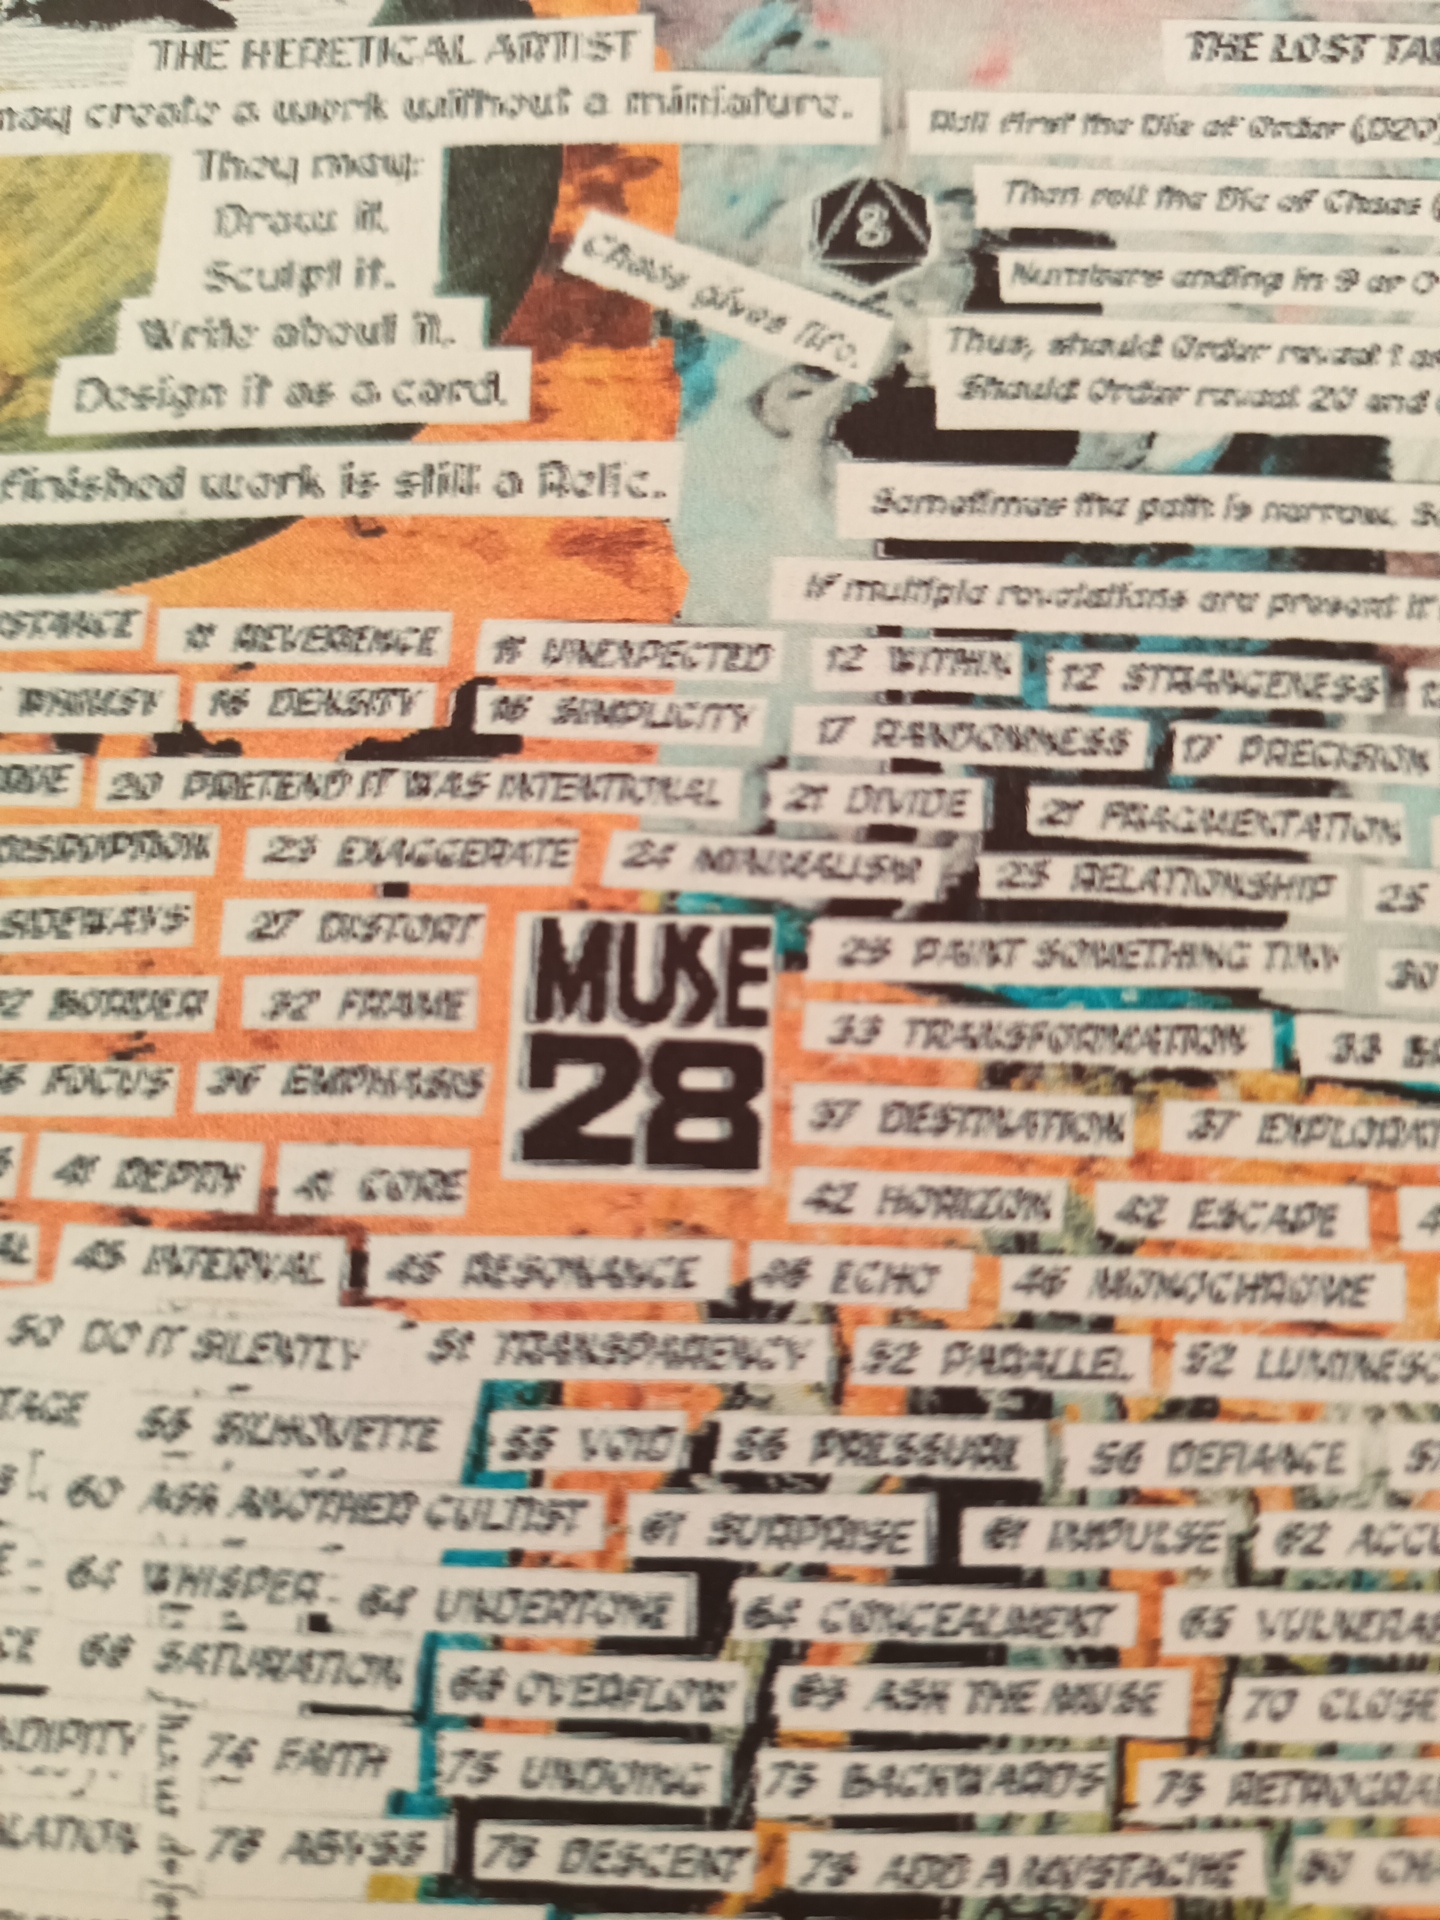 THE HERETICAL ARTIST
may create a work without a miniature.
They may:
Draw it.
Sculpt it.
Write about it.
Design it as a card.
finished work is still a Relic.
Chaos gives
8
THE LOST
Roll first the Die of Order (D20)
Then roll the Die of Chaos (
Numbers ending in 9 or 0
Thus, should Order reveal 1
Should Order reveal 20 and
Sometimes the path is narrow.
If multiple revelations are present
11 REVERENCE 11 UNEXPECTED 12 WITHIN 12 STRANGENESS
WHIMSY 16 DENSITY 16 SIMPLICITY 17 RANDOMNESS 17 PRECISION
20 PRETEND IT WAS INTENTIONAL 21 DIVIDE 21 FRAGMENTATION
23 EXAGGERATE 24 MINIMALISM 25 RELATIONSHIP 25
SIDEWAYS 27 DISTORT 29 PAINT SOMETHING TINY 30
BORDER 32 FRAME 33 TRANSFORMATION 33
MUSE
28
FOCUS 36 EMPHASIS 37 DESTINATION 37
41 DEPTH 41 CORE 42 HORIZON 42 ESCAPE
45 INTERVAL 45 RESONANCE 46 ECHO 46 MONOCHROME
50 DO IT SILENTLY 51 TRANSPARENCY 52 PARALLEL 52
55 SILHOUETTE 55 VOID 56 56 DEFIANCE
60 ASK ANOTHER CULTIST 61 SURPRISE 61 IMPULSE 62
64 WHISPER 64 UNDERTONE 64 CONCEALMENT 65
68 SATURATION 68 OVERFLOW 69 ASK THE MUSE 70 CLOSE
74 FAITH 75 UNDOING 75 BACKWARDS 75
78 ABYSS 78 DESCENT 79 ADD A MUSTACHE 80